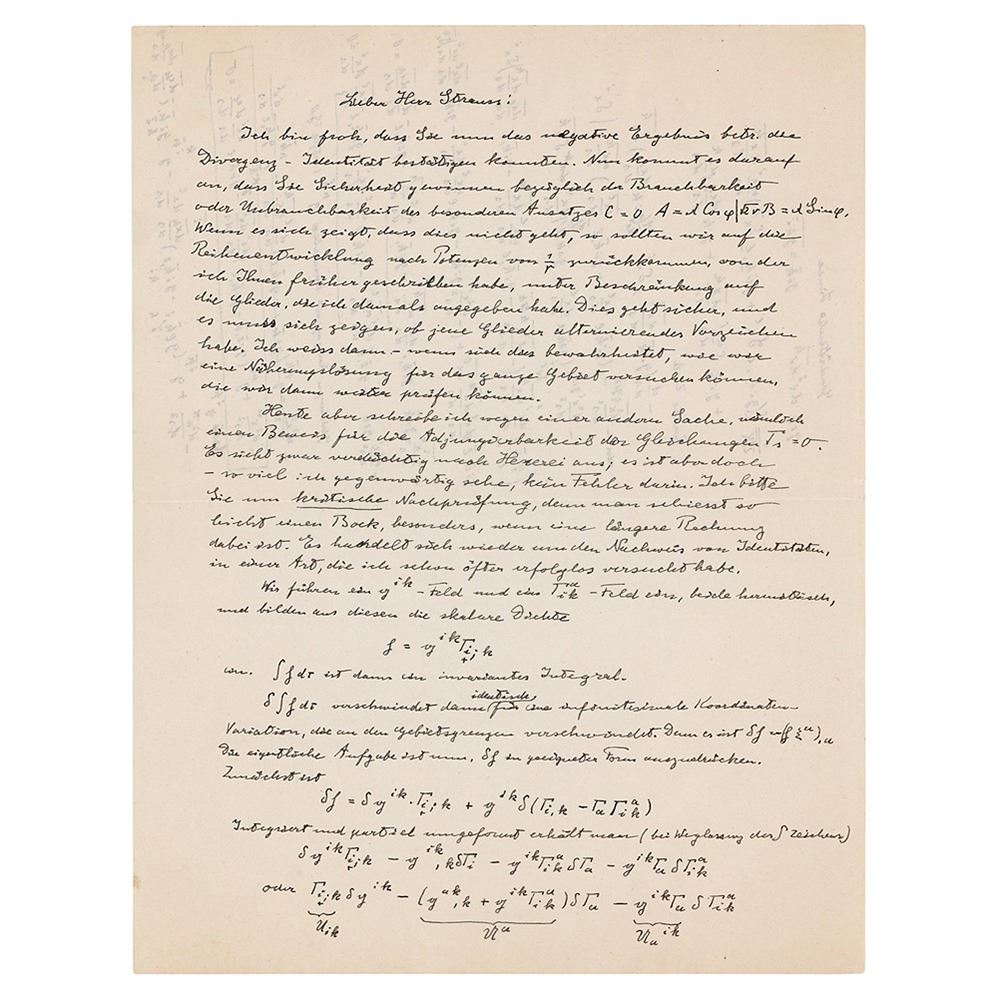 Lieber Herr Strauss!
Ich bin froh, dass Sie nun das negative Ergebnis betr. der
Divergenz-Identität bestätigen konnten. Nun kommt es darauf
an, dass Sie Sicherheit gewinnen bezüglich der Brauchbarkeit
oder Unbrauchbarkeit des besonderen Ansatzes C = 0 A = λ Cos φ | B = λ Sin φ.
Wenn es sich zeigt, dass dies nicht geht, so sollten wir auf die
Reihenentwicklung nach Potenzen von 1/r zurückkommen, von der
ich Ihnen früher geschrieben habe, unter Beschränkung auf
die Glieder, die ich damals angegeben habe. Dies geht sicher, und
es muss sich zeigen, ob jene Glieder alternierendes Vorzeichen
habe. Ich weiss dann – wenn sich das bewahrheitet, wie wir
eine Näherungslösung für das ganze Gebiet versuchen können,
die wir dann weiter prüfen können.
Heute aber schreibe ich wegen einer andern Sache, nämlich
einen Beweis für die Adjungierbarkeit der Gleichungen Γi = 0.
Es sieht zwar verdächtig nach Hexerei aus; es ist aber doch
– so viel ich gegenwärtig sehe, kein Fehler darin. Ich bitte
Sie um kritische Nachprüfung, denn man schiesst so
leicht einen Bock, besonders, wenn eine längere Rechnung
dabei ist. Es handelt sich wieder um den Nachweis von Identitäten,
in einer Art, die ich schon öfter erfolglos versucht habe.
Wir führen ein 𝔤^ik – Feld und ein Γ^a_ik – Feld ein, beide hermitisch,
und bilden aus diesen die skalare Dichte
f = 𝔤^ik Γ_i;k
+
∫ f dτ ist dann ein invariantes Integral.
δ ∫ f dτ verschwindet dann identisch für eine infinitesimale Koordinaten-
Variation, die an den Gebietsgrenzen verschwindet. Denn es ist δf = (f ξ^a),a
Die eigentliche Aufgabe ist nun, δf in geeigneter Form auszudrücken.
Zunächst ist
δf = δ𝔤^ik · Γ_i;k + 𝔤^ik δ(Γ_i,k – Γ_a Γ^a_ik)
Integriert und partiel umgeformt erhält man (bei Weglassung des ∫ Zeichens)
δ𝔤^ik Γ_i;k – 𝔤^ik,k δΓ_i – 𝔤^ik Γ^a_ik δΓ_a – 𝔤^ik Γ_a δΓ^a_ik
oder Γ_i;k δ𝔤^ik – (𝔤^ak,k + 𝔤^ik Γ^a_ik) δΓ_a – 𝔤^ik Γ_a δΓ^a_ik
𝔘_ik 𝔘^a 𝔘_a^ik